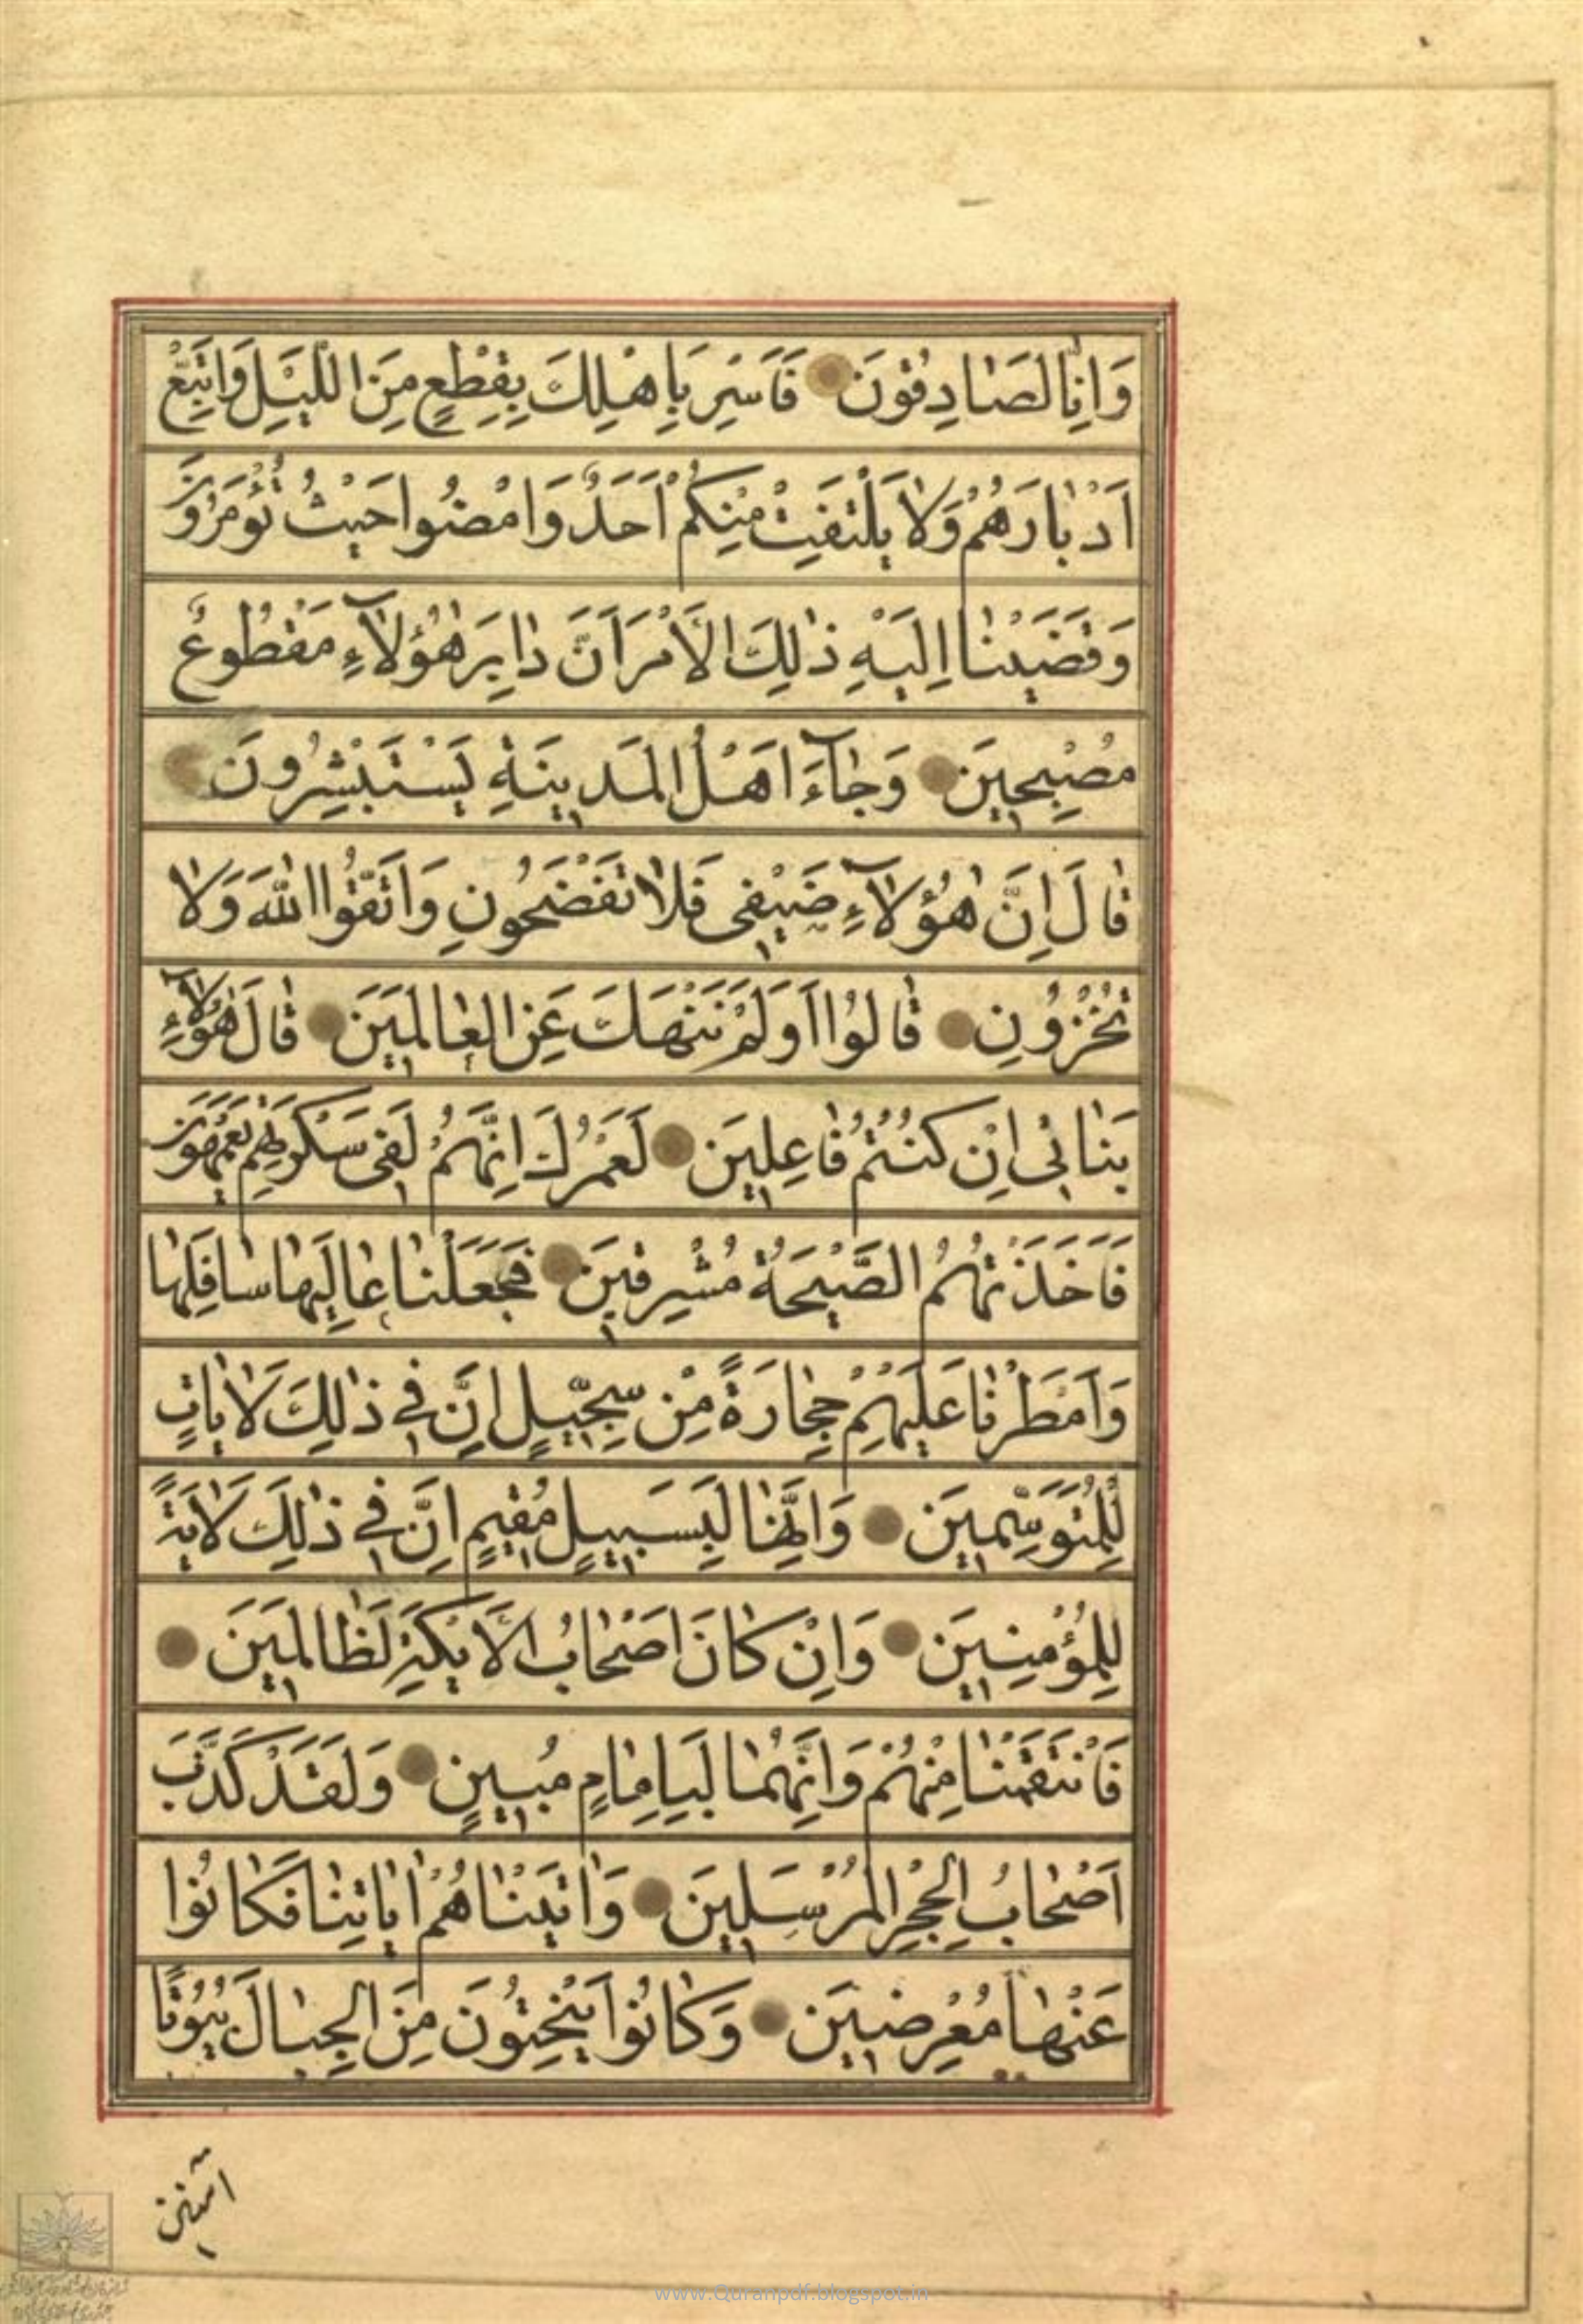 وَاِنّٰا لَصٰادِقُونَ فَاَسْرِ بِاَهْلِكَ بِقِطْعٍ مِنَ اللَّيْلِ وَاتَّبِعْ
اَدْبٰارَهُمْ وَلٰا يَلْتَفِتْ مِنْكُمْ اَحَدٌ وَامْضُوا حَيْثُ تُؤْمَرُونَ
وَقَضَيْنٰا اِلَيْهِ ذٰلِكَ الْاَمْرَ اَنَّ دٰابِرَ هٰؤُلٰاۤءِ مَقْطُوعٌ
مُصْبِحِينَ وَجٰاۤءَ اَهْلُ الْمَدِينَةِ يَسْتَبْشِرُونَ
قٰالَ اِنَّ هٰؤُلٰاۤءِ ضَيْفِى فَلٰا تَفْضَحُونِ وَاتَّقُوا اللّٰهَ وَلٰا
تُخْزُونِ قٰالُوا اَوَلَمْ نَنْهَكَ عَنِ الْعٰالَمِينَ قٰالَ هٰؤُلٰاۤءِ
بَنٰاتِى اِنْ كُنْتُمْ فٰاعِلِينَ لَعَمْرُكَ اِنَّهُمْ لَفِى سَكْرَتِهِمْ يَعْمَهُونَ
فَاَخَذَتْهُمُ الصَّيْحَةُ مُشْرِقِينَ فَجَعَلْنٰا عٰالِيَهٰا سٰافِلَهٰا
وَاَمْطَرْنٰا عَلَيْهِمْ حِجٰارَةً مِنْ سِجِّيلٍ اِنَّ فِى ذٰلِكَ لَاٰيٰاتٍ
لِلْمُتَوَسِّمِينَ وَاِنَّهٰا لَبِسَبِيلٍ مُقِيمٍ اِنَّ فِى ذٰلِكَ لَاٰيَةً
لِلْمُؤْمِنِينَ وَاِنْ كٰانَ اَصْحٰابُ الْاَيْكَةِ لَظٰالِمِينَ
فَانْتَقَمْنٰا مِنْهُمْ وَاِنَّهُمٰا لَبِاِمٰامٍ مُبِينٍ وَلَقَدْ كَذَّبَ
اَصْحٰابُ الْحِجْرِ الْمُرْسَلِينَ وَاٰتَيْنٰاهُمْ اٰيٰاتِنٰا فَكٰانُوا
عَنْهٰا مُعْرِضِينَ وَكٰانُوا يَنْحِتُونَ مِنَ الْجِبٰالِ بُيُوتًا
اٰمنين
www.Quranpdf.blogspot.in